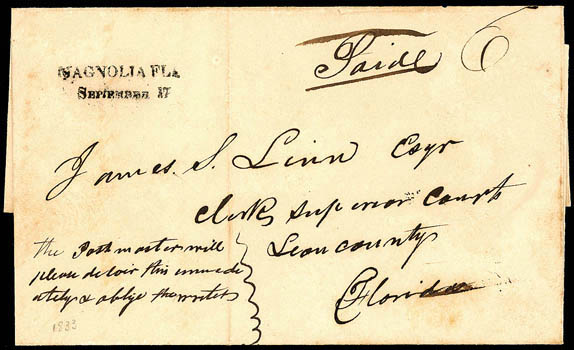 MAGNOLIA FLA
SEPTEMBER 17
Paide 6
James. S. Linn Esqr
clerk superior Court
Leon county
Florida
the Postmaster will
please deloir this immedi
ately & oblige the writer
1833